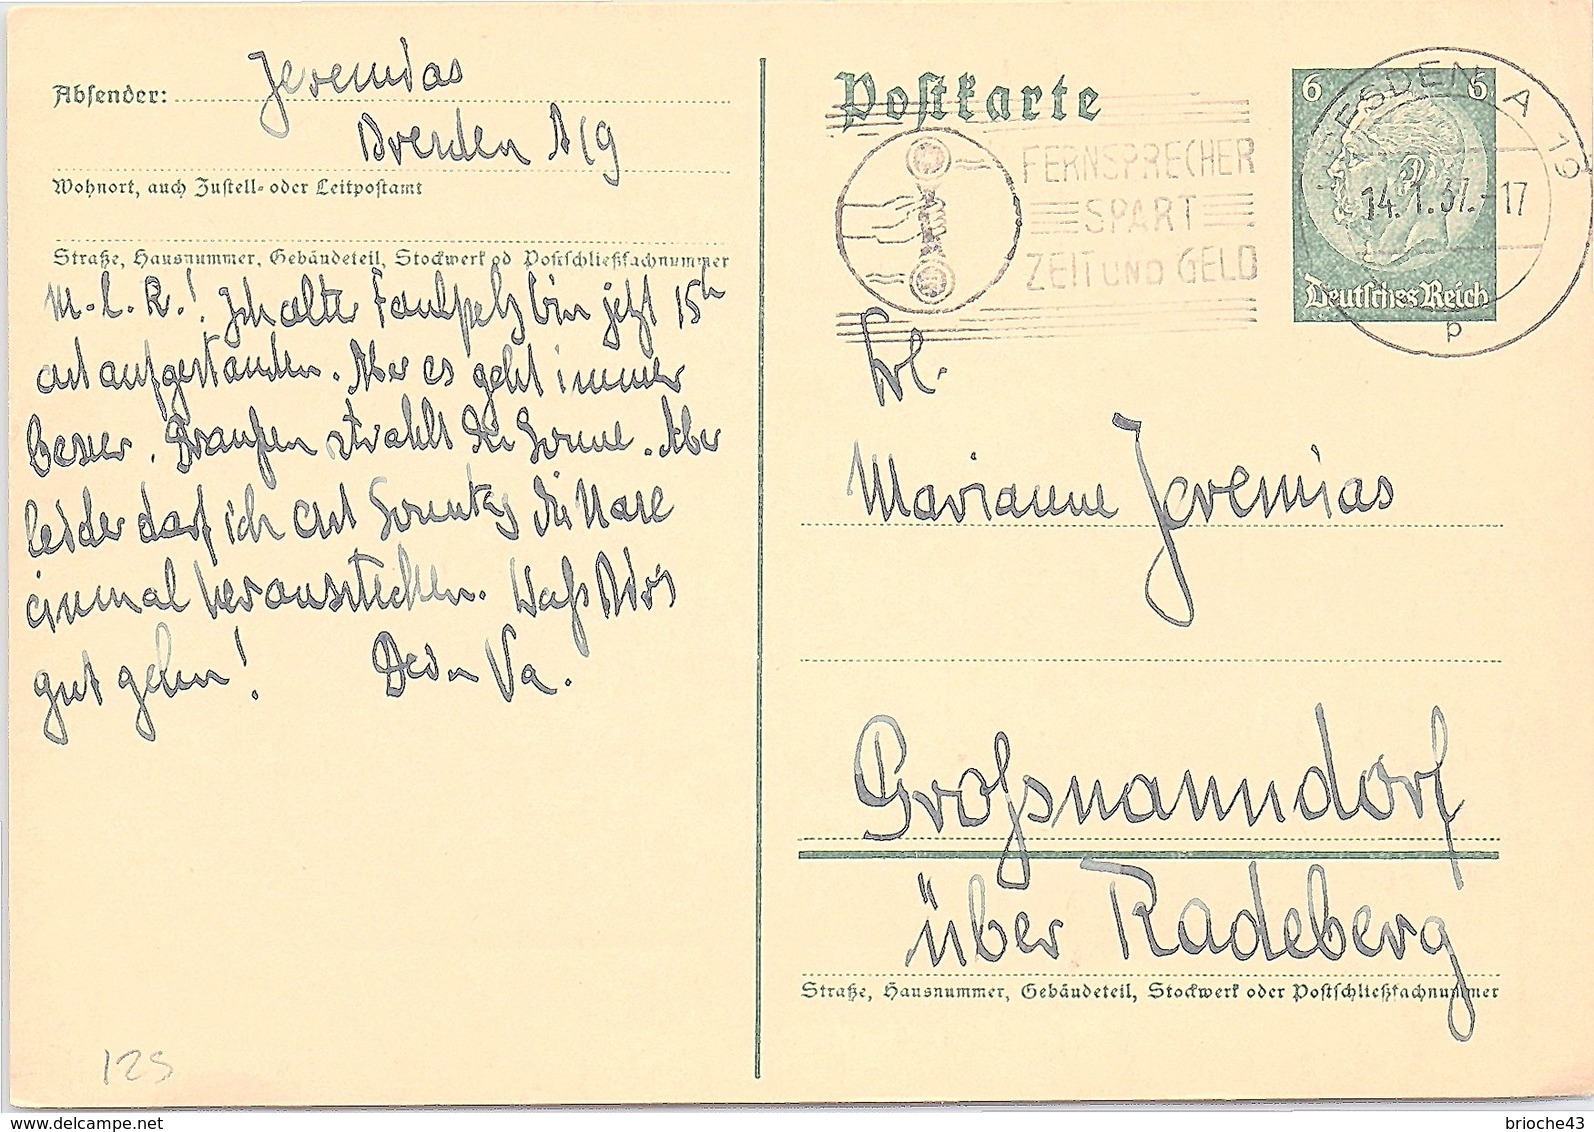 Absender: Jeremias
Dresden A19
Wohnort, auch Zustell- oder Leitpostamt
Straße, Hausnummer, Gebäudeteil, Stockwerk od Postschließfachnummer
M.-L. R.! Ich alter Faulpelz bin jetzt 15h
erst aufgestanden. Aber es geht immer
besser. Draußen strahlt die Sonne. Aber
leider darf ich erst Sonntag die Nase
einmal herausstecken. Laß Dir's
gut gehen! Dein Va.
125
Postkarte
FERNSPRECHER
SPART
ZEIT UND GELD
6 6
DRESDEN A 19
14.1.37.-17
p
Deutsches Reich
Frl.
Marianne Jeremias
Großnaundorf
über Radeberg
Straße, Hausnummer, Gebäudeteil, Stockwerk oder Postschließfachnummer
delcampe.net
brioche43